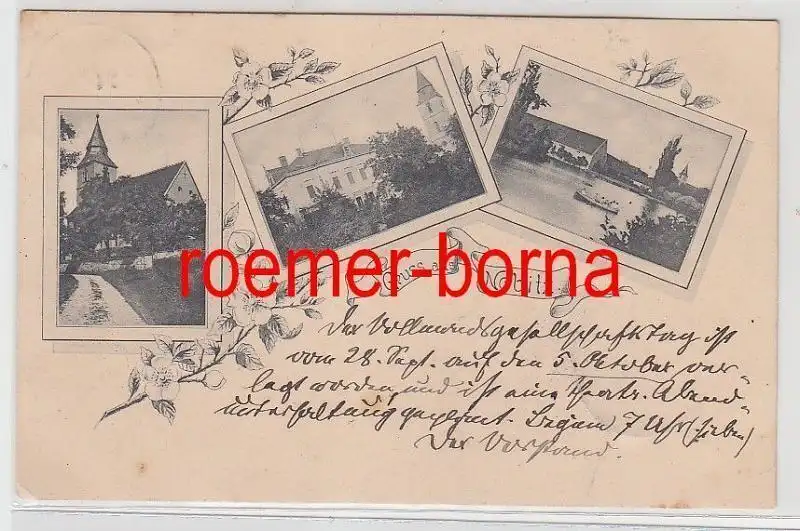 roemer-borna
Gruss aus
Der Vollmondsgesellschaftstag ist
vom 28. Sept. auf den 5. Oktober ver-
legt worden, und ist eine theatr. Abend-
unterhaltung geplant. Beginn 7 Uhr (sieben)
Der Vorstand.